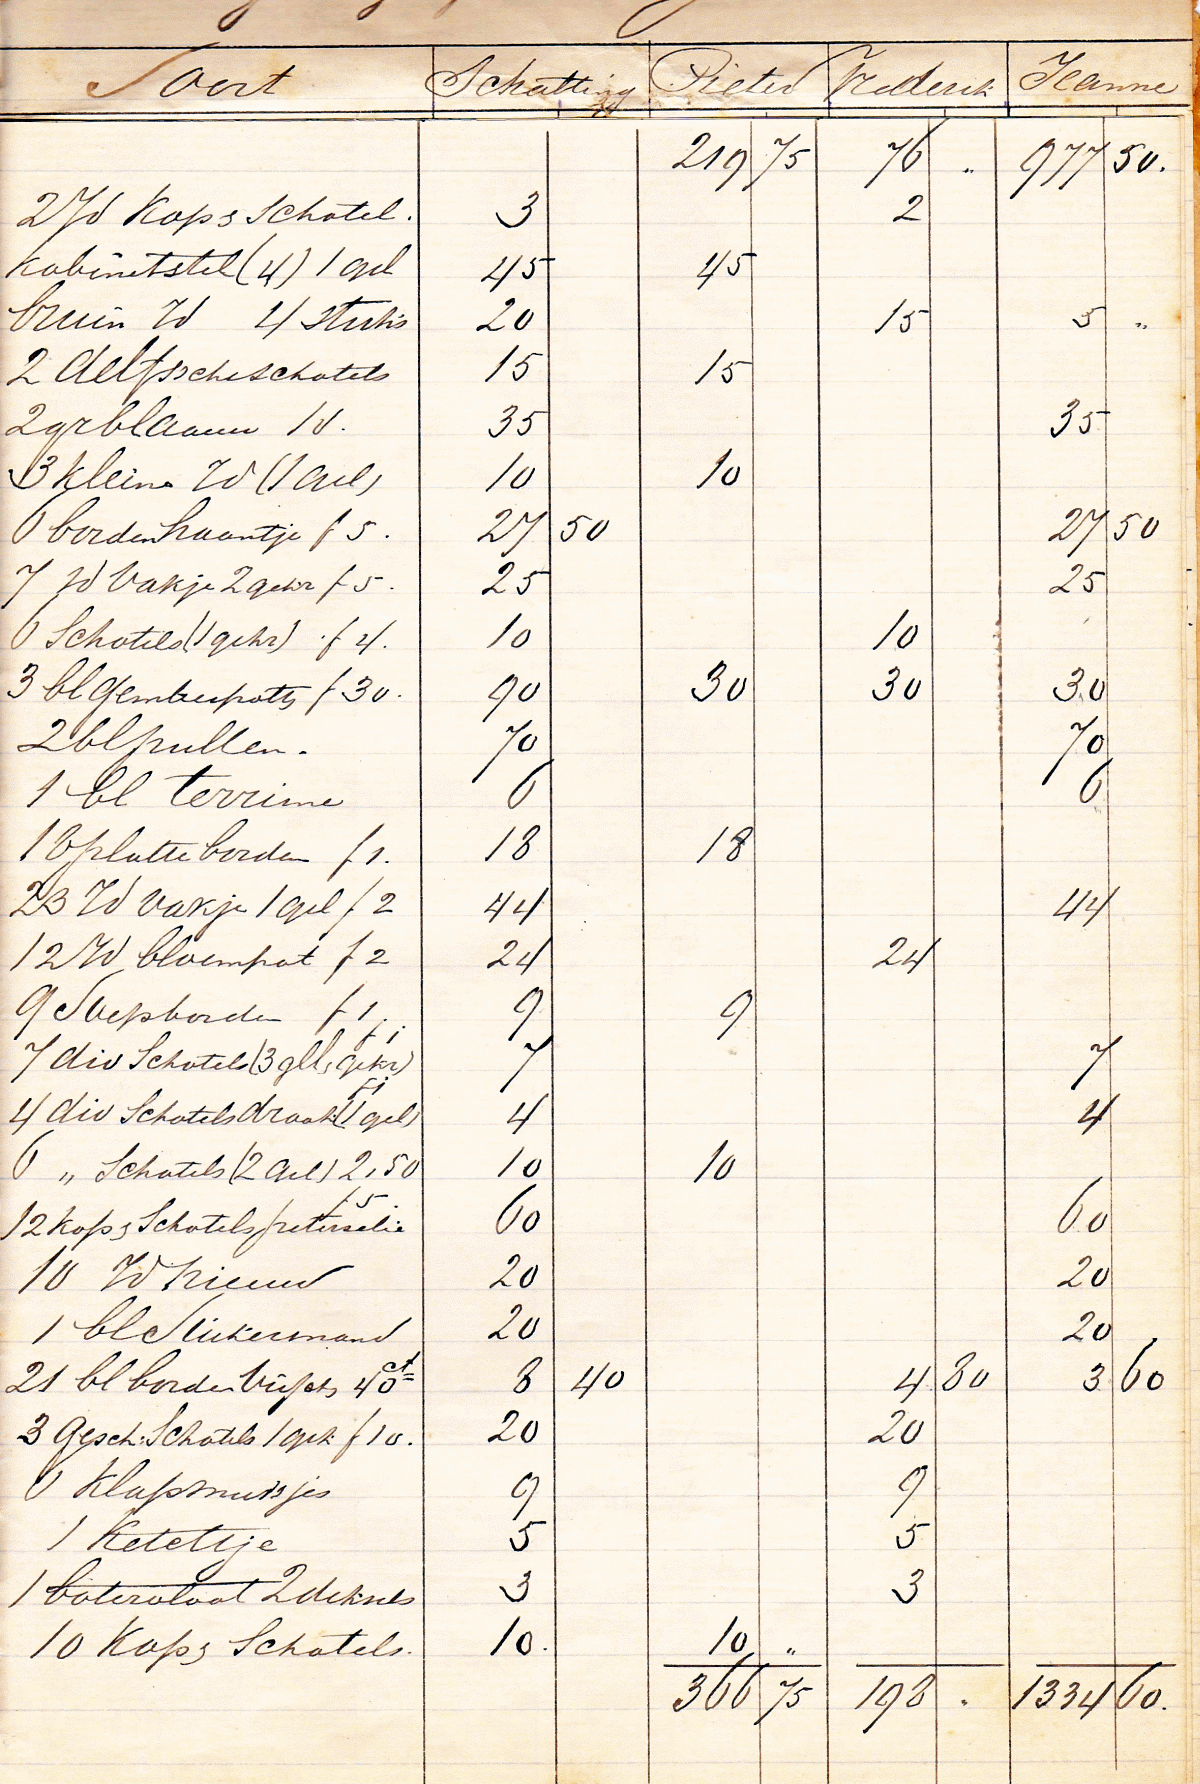 Soort Schatting Pieter Frederik Jeanne
219 75 76 „ 977 50.
2 Id Kop & Schotel. 3 2
Kabinetstel (4) 1 gel 45 45
bruin Id 4 stuks 20 15 5 „
2 delfssche schotels 15 15
2 gr blaauw Id. 35 35
3 kleine Id (1 gel) 10 10
6 borden haantje f 5. 27 50 27 50
7 Id vakje 2 gekr f 5. 25 25
6 Schotels (1 gekr) f 4. 10 10
3 bl gemberpotts f 30. 90 30 30 30
2 bl pullen. 70 70
1 bl terrine 6 6
18 platte borden f 1. 18 18
23 Id vakje 1 gel f 2 44 44
12 Id bloempot f 2 24 24
9 Soepborden f 1. 9 9
7 div Schotels (3 gll, gekr) f 1 7 7
4 div Schotels draak (1 gel) f 1 4 4
6 „ Schotels (2 gel) 2,50 10 10
12 kop & Schotels petercelie f 5. 60 60
10 Id nieuw 20 20
1 bl Suikermand 20 20
21 bl borden 40 ct 8 40 4 80 3 60
3 gesch: Schotels 1 gek f 10. 20 20
6 Klapmutsjes 9 9
1 Keteltje 5 5
1 botervloot 2 deksels 3 3
10 Kop & Schotels. 10. 10 „
366 75 198 . 1334 60.